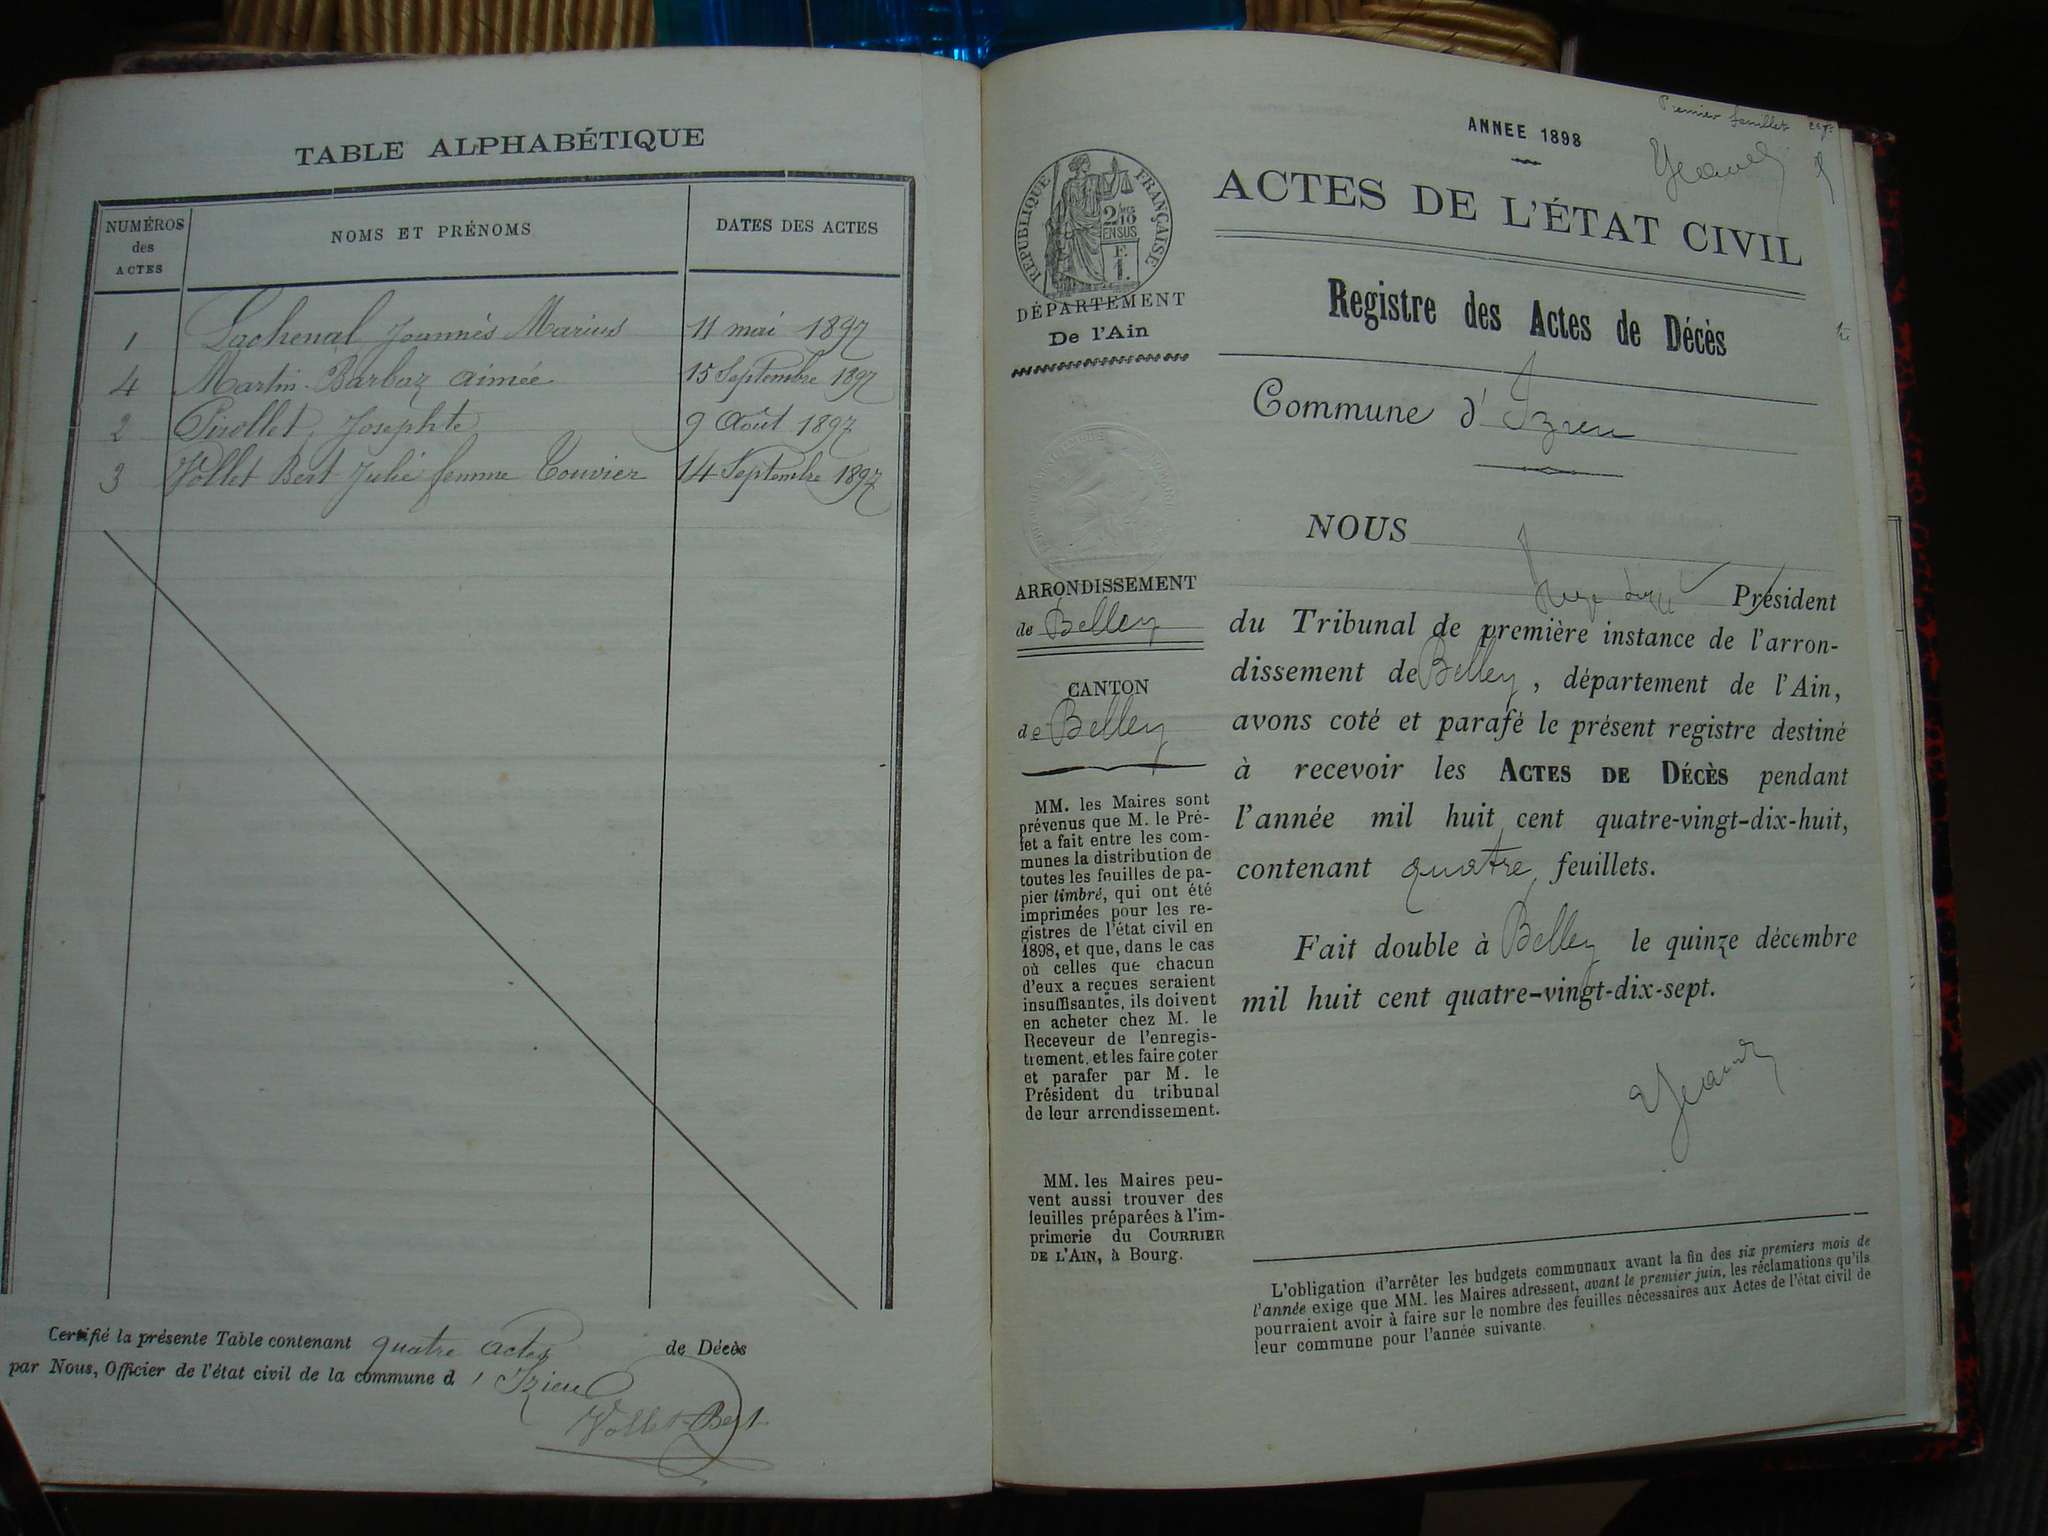 TABLE ALPHABÉTIQUE
NUMÉROS des ACTES
NOMS ET PRÉNOMS
DATES DES ACTES
1 Lachenal Joannès Marius 11 mai 1897
4 Martin-Barbaz aimée 15 Septembre 1897
2 Pirollet, Josephte 9 Août 1897
3 Vollet Bert Julie femme Touvier 14 Septembre 1897
Certifié la présente Table contenant quatre actes de Décès
par Nous, Officier de l'état civil de la commune d'Izieu
Vollet-Bert
Premier feuillet
ANNEE 1898
RÉPUBLIQUE FRANÇAISE
2/10 EN SUS
F.
1.
DÉPARTEMENT
De l'Ain
ACTES DE L'ÉTAT CIVIL
Registre des Actes de Décès
Commune d'Izieu
ARRONDISSEMENT
de Belley
CANTON
de Belley
MM. les Maires sont
prévenus que M. le Pré-
fet a fait entre les com-
munes la distribution de
toutes les feuilles de pa-
pier timbré, qui ont été
imprimées pour les re-
gistres de l'état civil en
1898, et que, dans le cas
où celles que chacun
d'eux a reçues seraient
insuffisantes, ils doivent
en acheter chez M. le
Receveur de l'enregis-
trement, et les faire coter
et parafer par M. le
Président du tribunal
de leur arrondissement.
MM. les Maires peu-
vent aussi trouver des
feuilles préparées à l'im-
primerie du COURRIER
DE L'AIN, à Bourg.
NOUS
Président
du Tribunal de première instance de l'arron-
dissement de Belley, département de l'Ain,
avons coté et parafé le présent registre destiné
à recevoir les ACTES DE DÉCÈS pendant
l'année mil huit cent quatre-vingt-dix-huit,
contenant quatre feuillets.
Fait double à Belley le quinze décembre
mil huit cent quatre-vingt-dix-sept.
L'obligation d'arrêter les budgets communaux avant la fin des six premiers mois de
l'année exige que MM. les Maires adressent, avant le premier juin, les réclamations qu'ils
pourraient avoir à faire sur le nombre des feuilles nécessaires aux Actes de l'état civil de
leur commune pour l'année suivante.